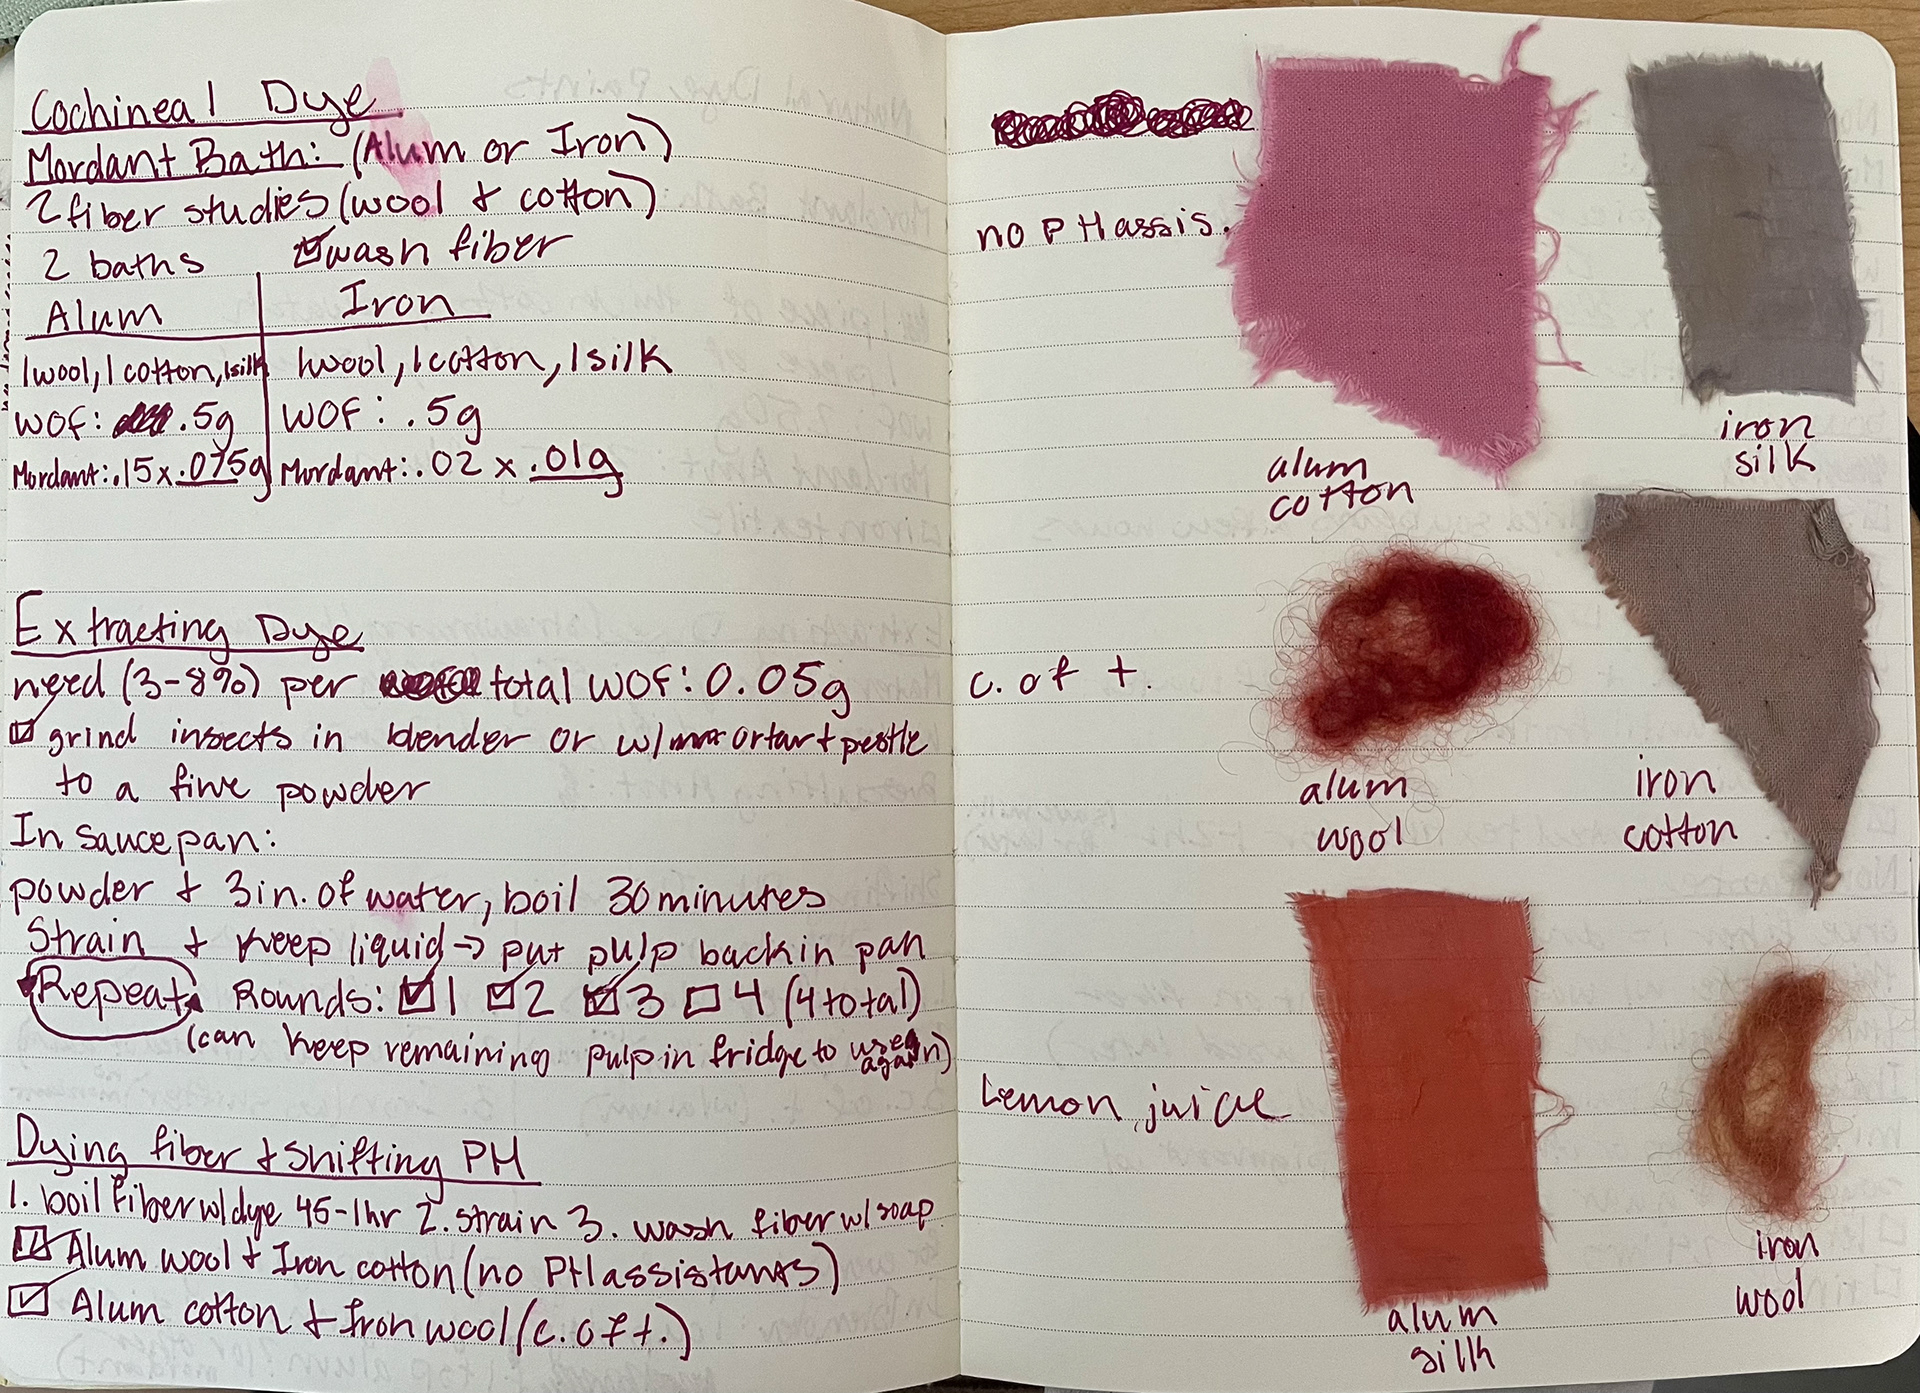 Cochineal Dye
Mordant Bath: (Alum or Iron)
2 fiber studies (wool + cotton)
2 baths ☑ wash fiber
Alum Iron
1 wool, 1 cotton, 1 silk 1 wool, 1 cotton, 1 silk
WOF: .5g WOF: .5g
Mordant: .15 x .075g Mordant: .02 x .01g
Extracting Dye
need (3-8%) per total WOF: 0.05g
☑ grind insects in blender or w/ mortar + pestle
to a fine powder
In saucepan:
powder + 3 in. of water, boil 30 minutes
Strain + Keep liquid → put pulp back in pan
Repeat Rounds: ☑ 1 ☑ 2 ☑ 3 ☐ 4 (4 total)
(can keep remaining pulp in fridge to use again)
Dying fiber + Shifting PH
1. boil fiber w/ dye 45-1hr 2. strain 3. wash fiber w/ soap
☑ Alum wool + Iron cotton (no PH assistants)
☑ Alum cotton + Iron wool (c. of t.)
no PH assis.
alum
cotton
iron
silk
c. of t.
alum
wool
iron
cotton
Lemon juice
alum
silk
iron
wool